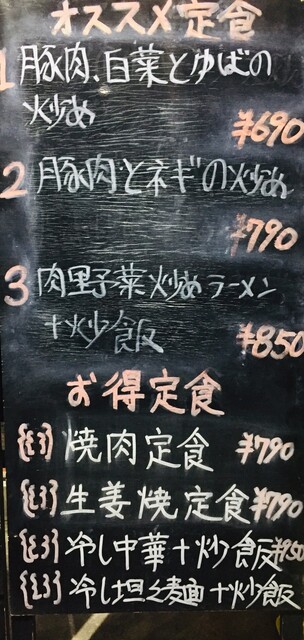 オススメ定食
1 豚肉、白菜とゆばの
炒め
¥690
2 豚肉とネギの炒め
¥790
3 肉野菜炒めラーメン
+炒飯
¥850
お得定食
焼肉定食 ¥790
生姜焼定食 ¥790
冷し中華+炒飯 ¥850
冷し坦々麺+炒飯